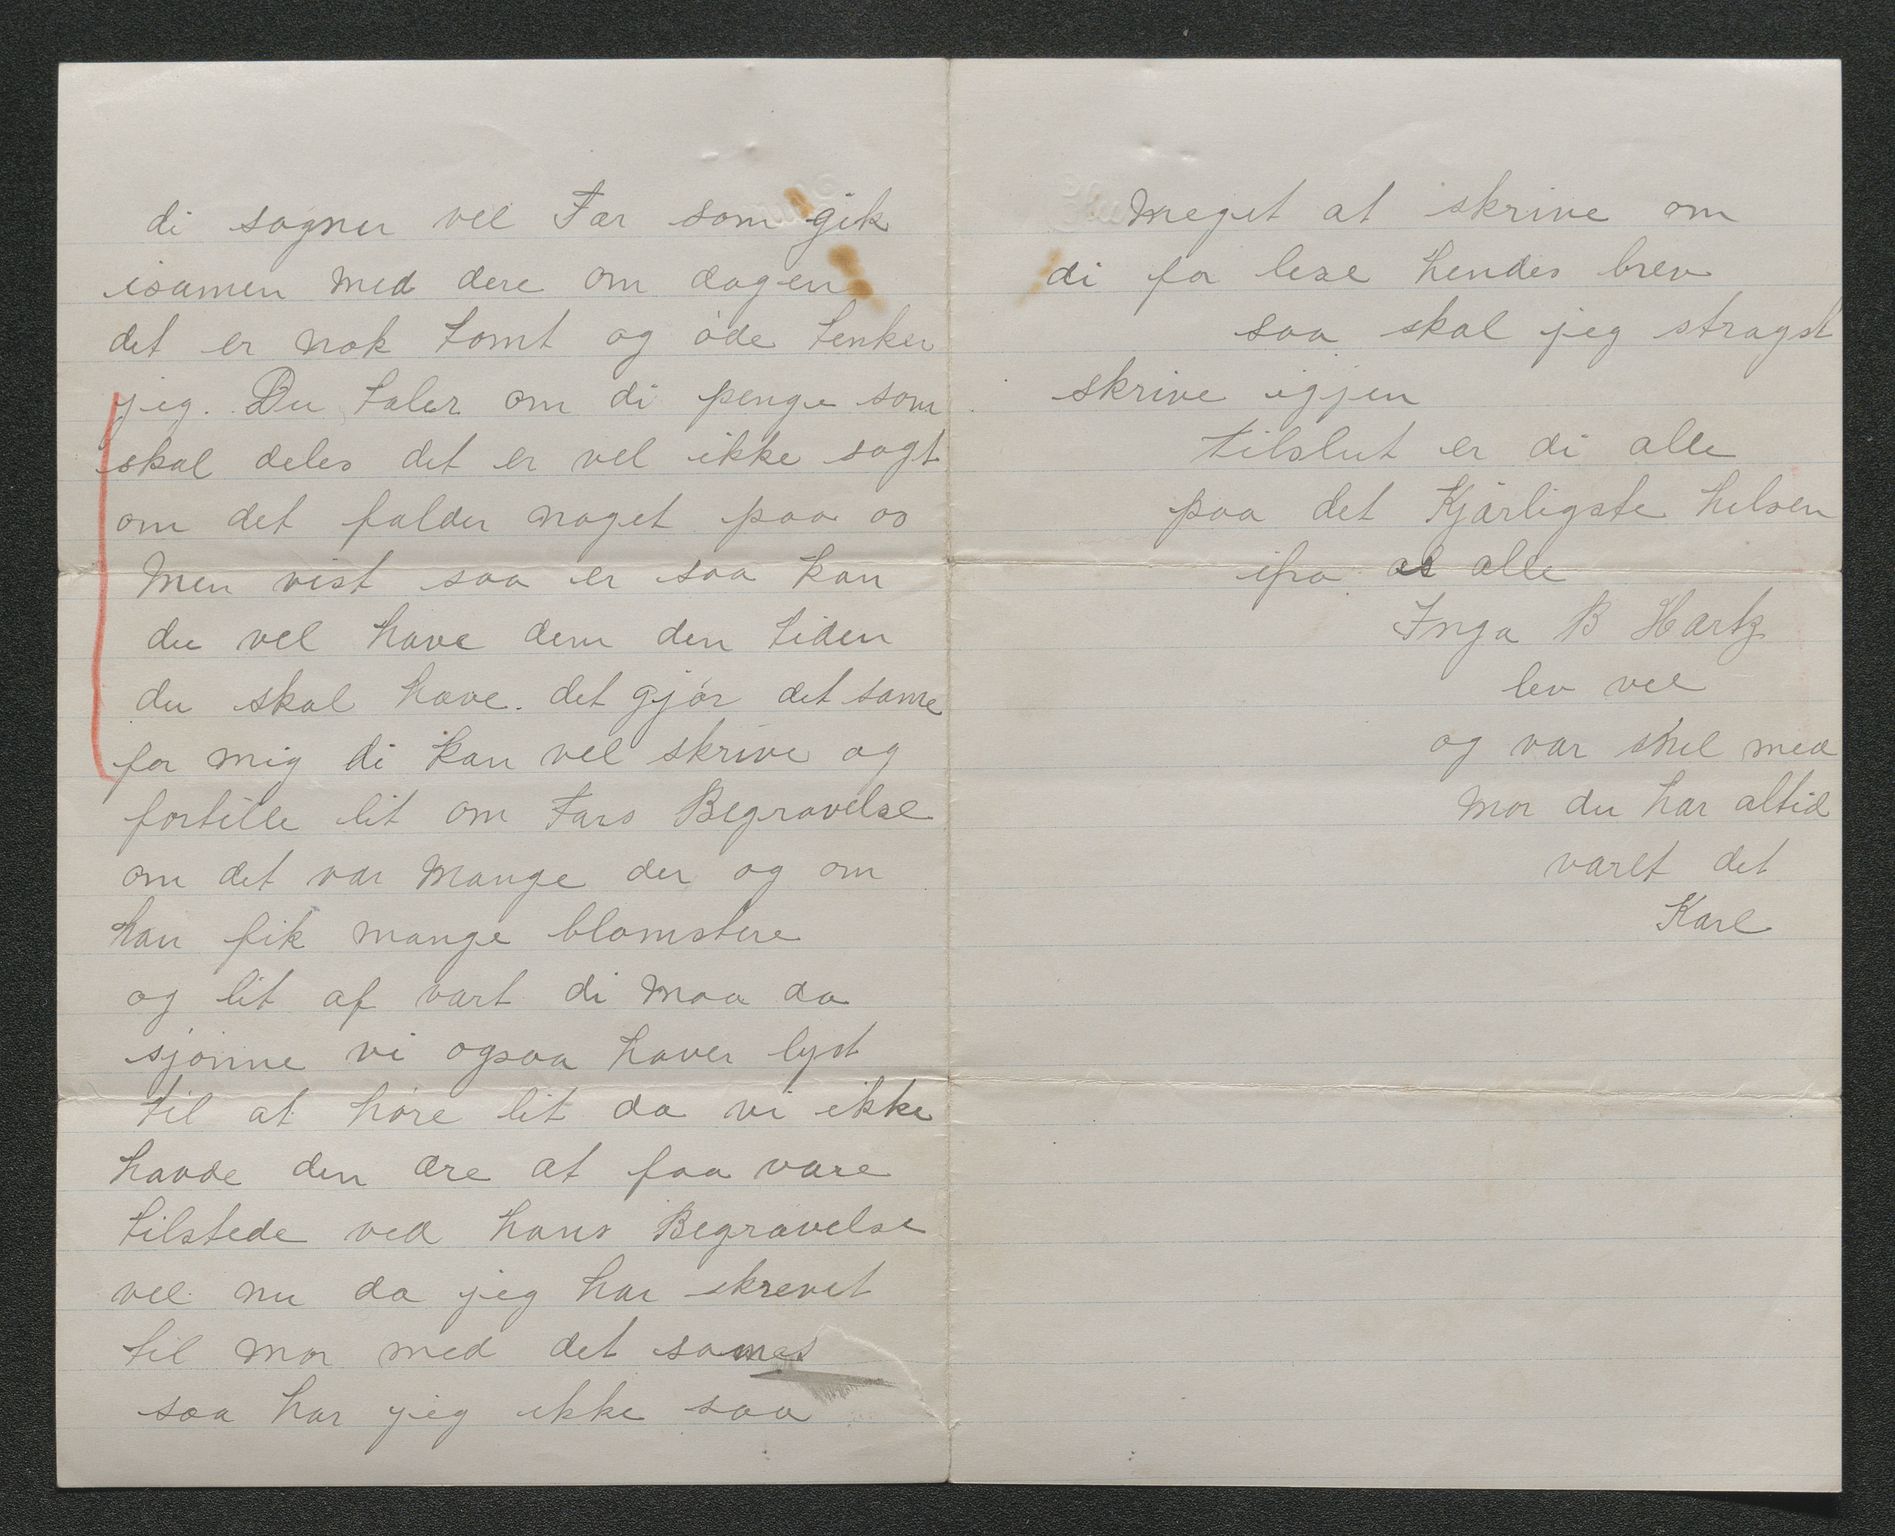 di sagner vel Far som gik
isamen med dere om dagen
det er nok tomt og øde tenker
jeg. Du taler om di penge som
skal deles det er vel ikke sagt
om det falder noget paa os
Men vist saa er saa kan
du vel have dem den tiden
du skal have. det gjør det same
for mig di kan vel skrive og
fortelle lit om Fars Begravelse
om det var mange der og om
han fik mange blomstere
og lit af vart di maa da
sjønne vi ogsaa haver lyst
til at høre lit da vi ikke
havde den ære at faa være
tilstede ved hans Begravelse
vel nu da jeg har skrevet
til mor med det sames
saa har jeg ikke saa
meget at skrive om
di for lese hendes brev
saa skal jeg stragst
skrive igjen
tilslut er di alle
paa det Kjærligste hilsen
ifra os alle
Inga B Hartz
lev vel
og var snil med
Mor du har altid
vært det
Karl